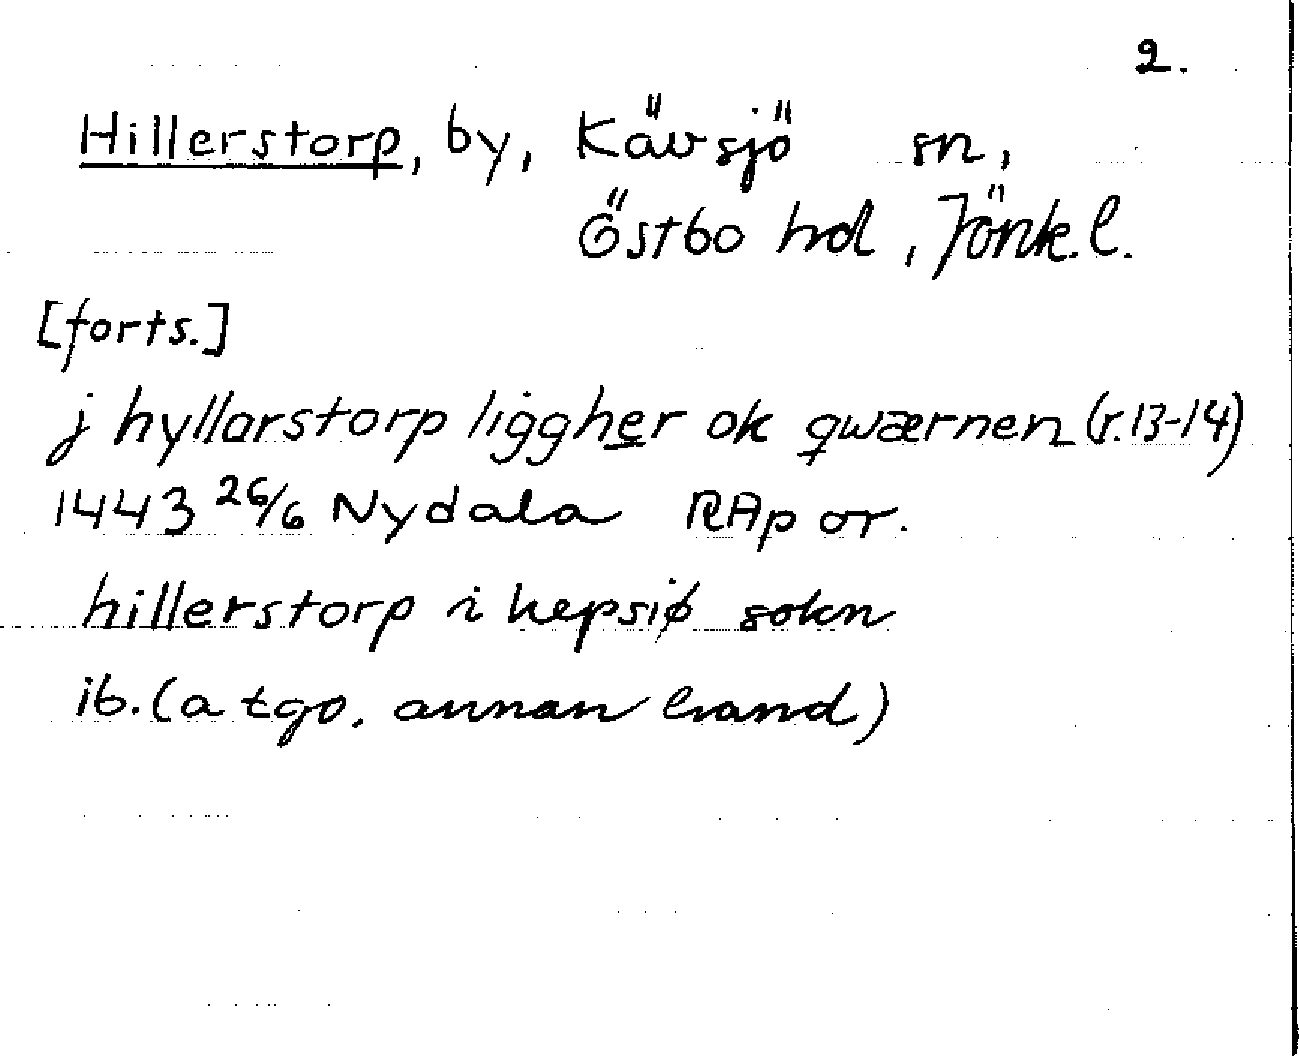 2.
Hillerstorp, by, Kävsjö sn,
Östbo hd, Jönk. l.
[forts.]
j hyllarstorp liggher ok qwærnen (r. 13-14)
1443 26/6 Nydala RAp or.
hillerstorp i kepsiø sokn
ib. (a tgo. annan hand)